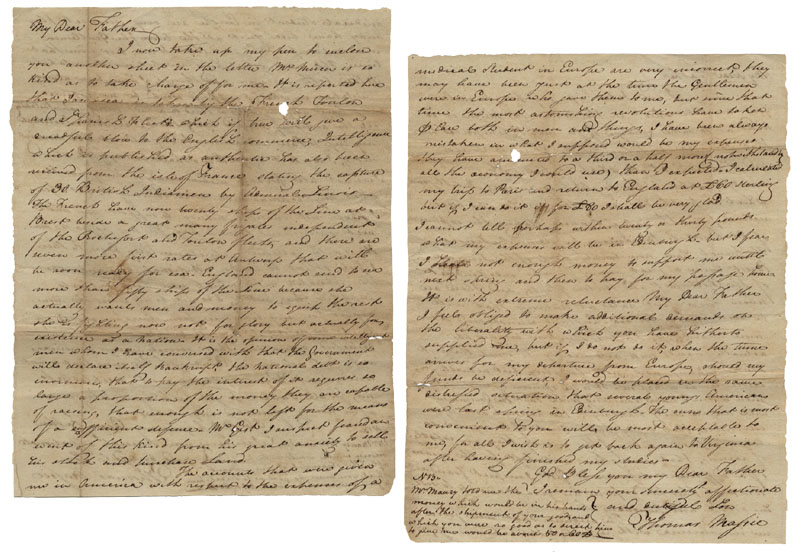 My Dear Father
I now take up my pen to inclose
you another sheet in the letter Mr. is so
kind as to take charge of for me. It is reported here
that Jamaica is taken by the French Toulon
and Fleets which if true will give a
dreadful blow to the English commerce; Intelligence
which is published as authentic has also been
received from the isle of France stating the capture
of British Indiamen by Admiral
The French have now twenty ships of the Line at
Brest besides a great many frigates independent
of the Rochefort and Toulon fleets, and there are
seven more first rates at Antwerp that will
be soon ready for sea. England cannot send to sea
more than fifty ships of the line because she
actually wants men and money to equip the rest
she is fighting now not for glory but actually for
existence as a Nation. It is the opinion of some
men whom I have conversed with that the Government
will declare itself bankrupt. The National debt is so
enormous, that to pay the interest of it requires so
large a proportion of the money they are capable
of raising, that enough is not left for the means
of a sufficient defence. Mr. I suspect
of this kind from his great anxiety to sell
his stock and purchase land.
The accounts that were given
me in America with respect to the expenses of a
medical Student in Europe are very incorrect they
may have been just at the time the Gentlemen
were in Europe who gave them to me, but since that
time the most astonishing revolutions have taken
place both in men and things, I have been always
mistaken in what I supposed would be my expenses
they have amounted to a third or a half more (notwithstanding
all the economy I could use) than I expected. I calculated
my trip to Paris and return to England at sterling
but if I can do it for I shall be very glad
I cannot tell perhaps within twenty or thirty pounds
what my expenses will be in Edinburgh but I fear
I shall not enough money to support me until
next spring and then to pay for my passage home
It is with extreme reluctance My Dear Father
I feel obliged to make additional demands on
the liberality with which you have hitherto
supplied me, but if I do not do it, when the time
arrives for my departure from Europe, should my
funds be deficient I would be placed in the same
distressed situation that several young Americans
were last spring in Edinburgh. The sum that is most
convenient to you will be most acceptable to
me, for all I wish is to get back again to Virginia
after having finished my studies.
God bless you my Dear Father
I remain your sincerely affectionate
and dutiful Son
Thomas Massie
N.B.
Mr. Maury told me the
money which would be in his hands
after the shipment of your goods and
which you were so good as to direct him
to give me would be about